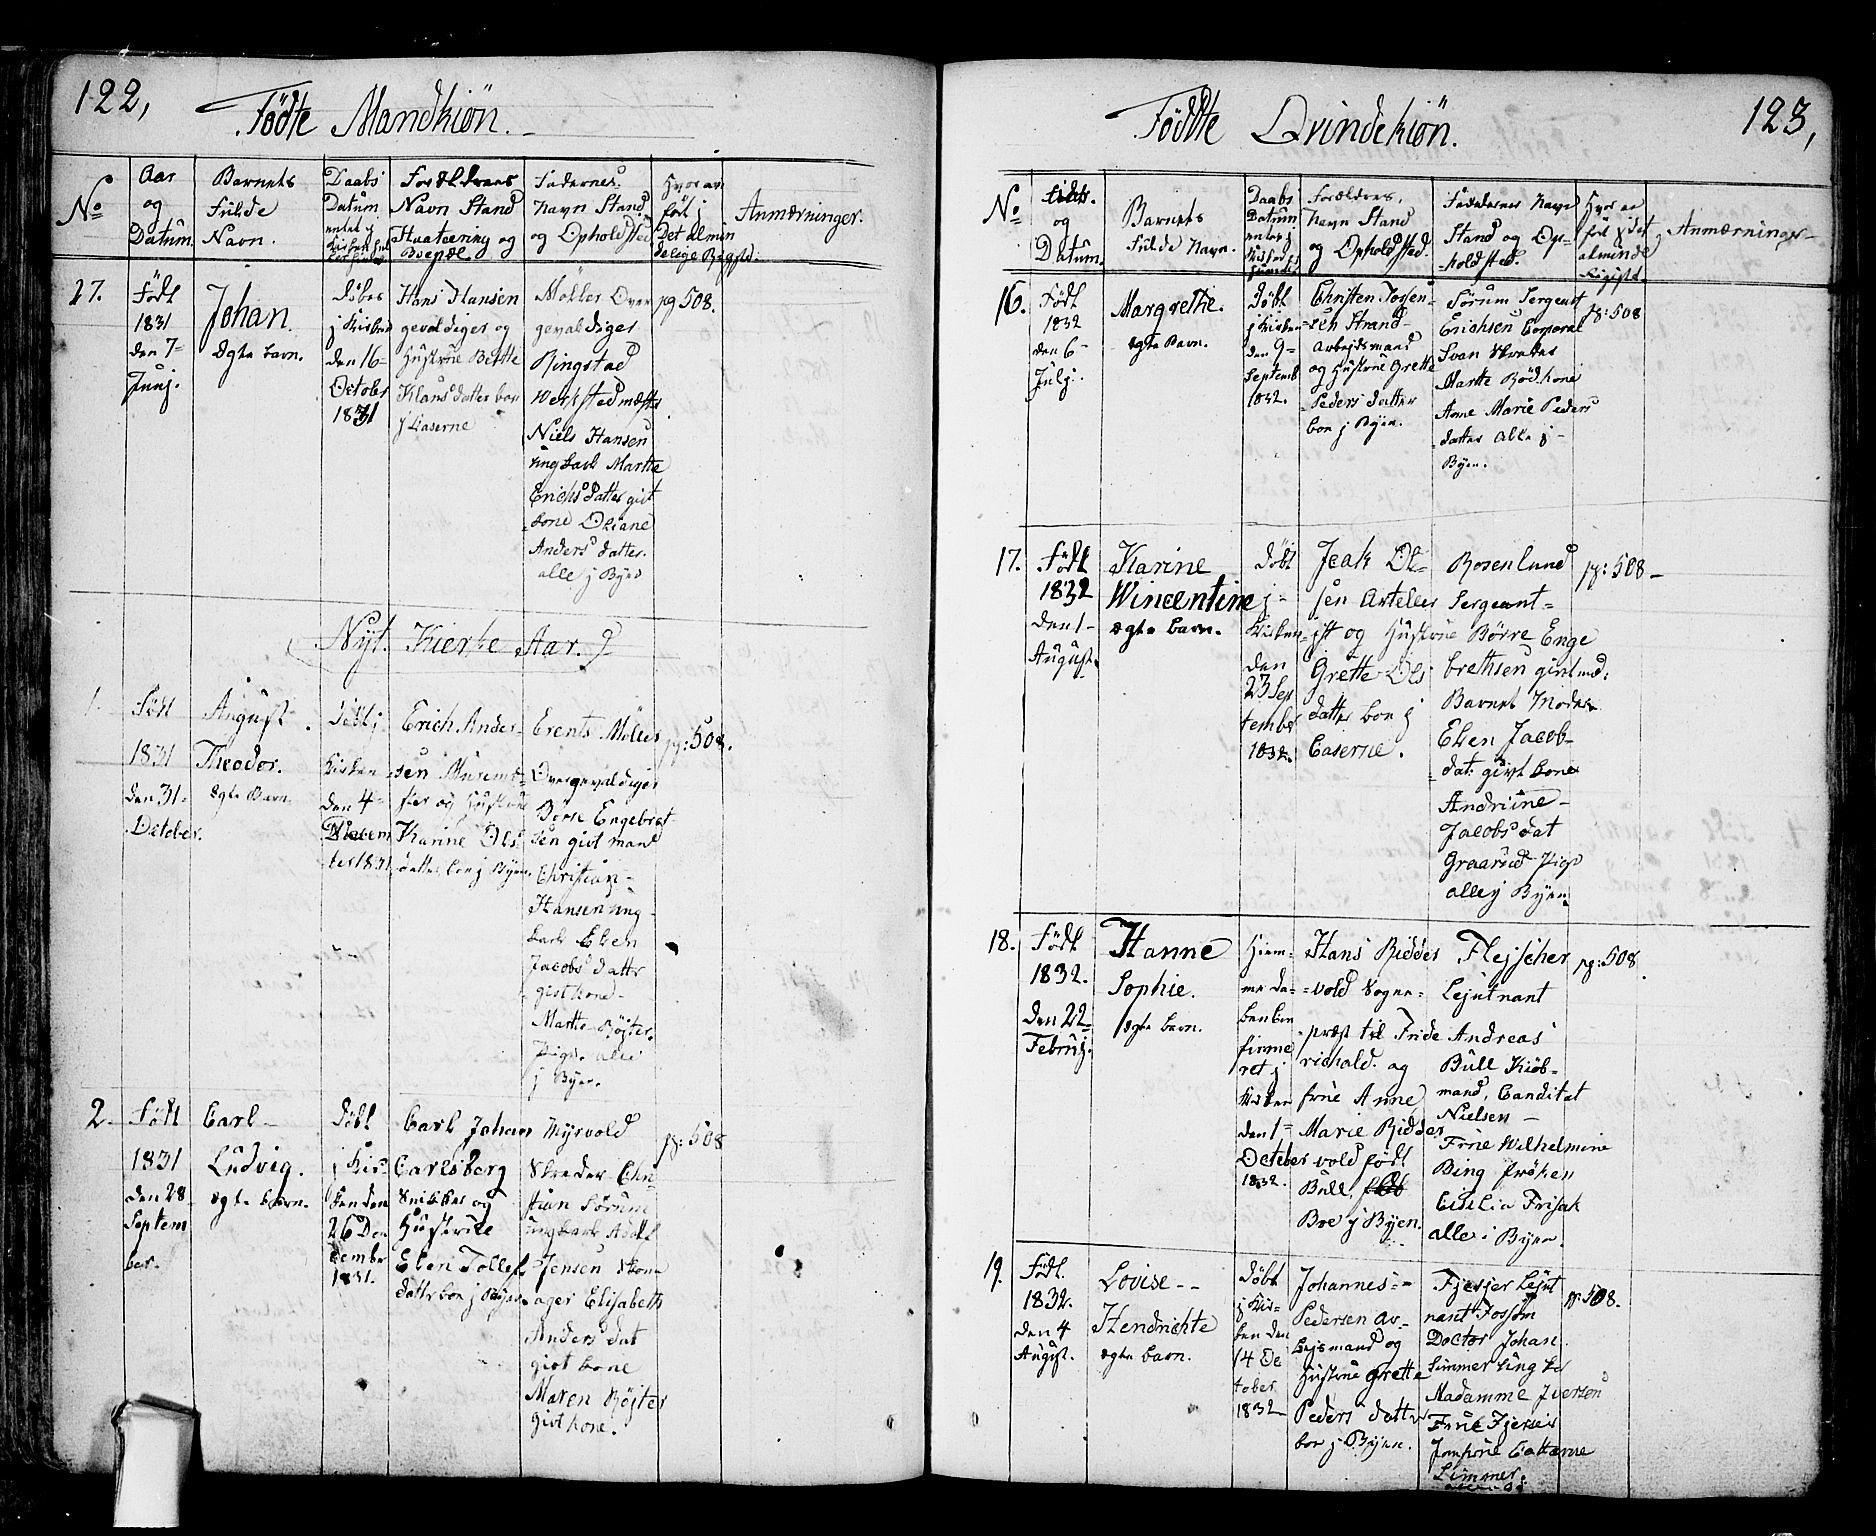 122,
Födte Mandkiön.
No
Aar
og
Datum.
Barnets
Fulde
Navn.
Daabs
Datum
Foreldrenes
Navn Stand
Haatering og
Boepæl.
Fadernes
Navn Stand
og Opholdsted
Hvor an
fört j
Det almin
delige Regist:
Anmærninger.
27.
Födt
1831
den 7=
Junj.
Johan.
Ægte barn.
Döbes
j Kirken
den 16=
October
1831
Hans Hansen
gevaldiger og
Hustrue Berthe
Klaus datter boe
j Caserne
Möller Over
gevaldiger
Ringstad
Verkstedmæster
Niels Hansen
ungkarl Marthe
Erichs datter givt
kone Oliane
Anders datter.
alle j Byen
pg 508.
Nyt. Kierke Aar.
1.
Födt
1831
den 31=
October.
August
Theodor.
Ægte Barn.
Döbt j
Kirken
den 4=
Decem
ber 1831
Erich Ander-
sen Murem-
ster og Hustrue
Karine Ols
datter boe j Byen.
Erents Möller
Overgevaldiger
Börre Engebret
sen givt mand
Christian-
Hansen ung-
karl Elen
Jacobs datter
givt kone-
Marthe Röjter.
Pige. alle
j Byen.
pg: 508.
2.
Födt
1831
den 28
Septem
ber.
Carl-
Ludvig.
Ægte barn.
Döbt
j Kir-
ken den
26 De
cember
1831.
Carl Johan
Carlsberg
Snikker og
Hustrue
Elen Tollef
datter boe j Byen.
Myrvold
Skreder Chri-
stian Sörum
ungkarl Adolf
Jensen Skoe
ager Elisabeth
Anders dat
givt kone
Maren Röjter
givt kone.
pg: 508
123,
Födte Qvindekiön.
No
og
Datum.
Barnets
Fulde Navn.
Daabs
Datum
Forældres,
Navn Stand
og Opholdsted.
Faddernes Navn
Stand og Op-
holdsted.
Hvor er
fört j det
alminde
Regist.
Anmærninger
16.
Födt
1832
den 6-
Julj.
Margrethe.
Ægte Barn.
Döbt
j Kirken
den 9=
Septemb
1832.
Christen Torsen-
sen Strand-
Arbejdsmand
og Hustrue Grette
Peders datter
boe j Byen.
Sörum Sergeant
Erichsen Corporal
Svan Skreder
Marthe Rödkone
Anne Marie Peders
datter alle j-
Byen.
pg: 508
17.
Födt
1832
den 1-
August.
Karine
Wincentine
Ægte barn.
Döbt
j-
Kirken
den
23 Sep
tember
1832.
Jeak Ol-
sen Arteller
ist og Hustrue
Grette Ols
datter boe j
Caserne.
Rosenlund
Sergeant=
Börre Enge
brethsen givt md:
Barnets Moder
Elen Jacob-
dat: givt kone
Andriine-
Jacobs dat
Graarud Pige
alle j Byen.
pg: 508-
18.
Födt
1832.
den 22=
Februj.
Hanne
Sophie.
Ægte barn.
Hiem-
me da-
ben kon
firme
ret j
Kirken
den 1=
October
1832.
Hans Ridder
vold Sogne-
præst til Fride
richald. og
frue Anne
Marie Ridder
vold födt
Bull.
Boe j Byen.
Flejscher
Lejutnant
Andreas
Bull Kiöb-
mand, Canditat
Nielsen-
Frue Wilhelmine
Bing fröken
Cicilia Frisak
alle i Byen.
pg: 508.
19.
Födt.
1832.
den 4
August.
Lovise-
Hendrichte
Ægte barn.
Döbt
j Kir-
ken den
14 Oc
tober
1832
Johannes-
Pedersen Ar-
bejsmand og
Hustrue Grette
Peders datter
boe j Byen.
Fjerjer Lejut
nant Fossom
Doctor Johan
Simmer ung ka
Madamme Iversen
Frue Fjerjer
Jomfrue Cattarine
Simmer.
pg: 508.